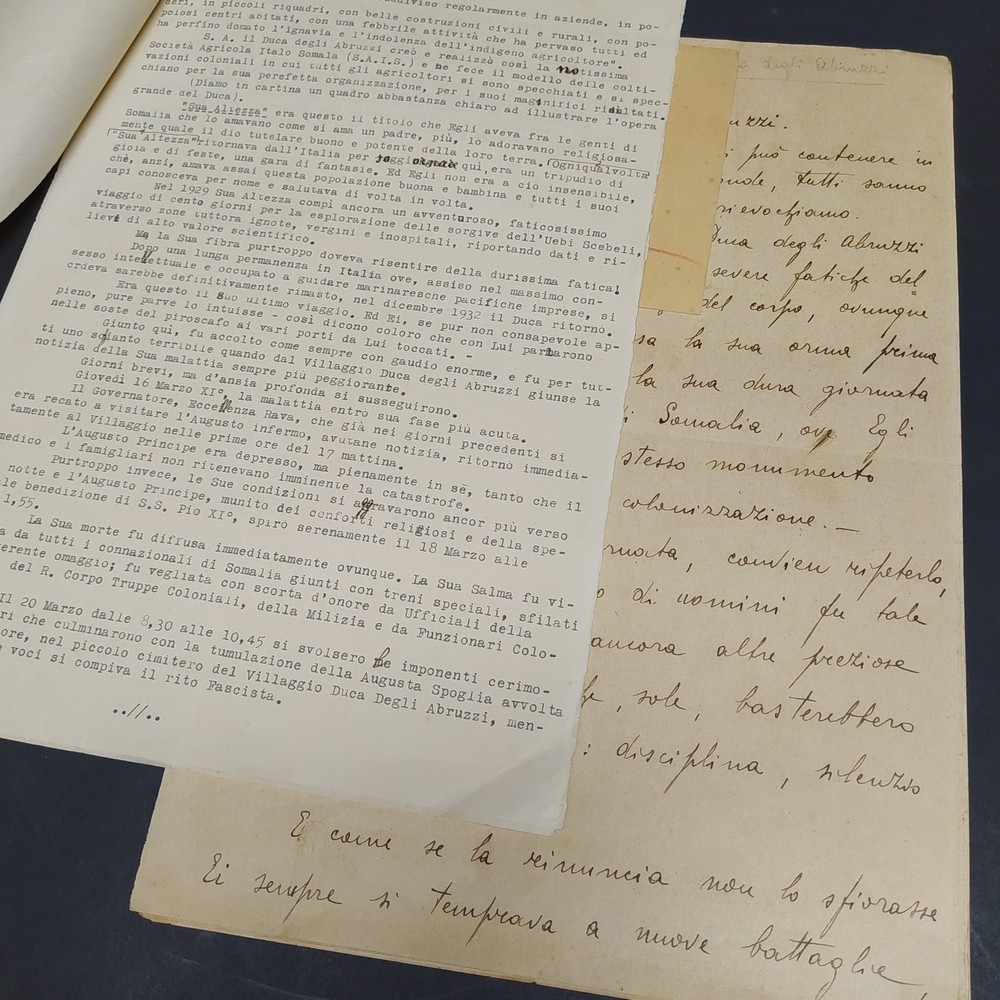 suddiviso regolarmente in aziende, in po-
deri, in piccoli riquadri, con belle costruzioni civili e rurali, con po-
polosi centri abitati, con una febbrile attività che ha pervaso tutti ed
ha perfino domato l'ignavia e l'indolenza dell'indigeno agricoltore".
S. A. il Duca degli Abruzzi creò e realizzò così la notissima
Società Agricola Italo Somala (S.A.I.S.) e ne fece il modello delle colti-
vazioni coloniali in cui tutti gli agricoltori si sono specchiati e si spec-
chiano per la sua perefetta organizzazione, per i suoi magnifici risultati.
(Diamo in cartina un quadro abbastanza chiaro ad illustrare l'opera
grande del Duca).
"Sua Altezza" era questo il titolo che Egli aveva fra le genti di
Somalia che lo amavano come si ama un padre, più, lo adoravano religiosa-
mente quale il dio tutelare buono e potente della loro terra. Ogniqualvolta
"Sua Altezza" ritornava dall'Italia per qui, era un tripudio di
gioia e di feste, una gara di fantasie. Ed Egli non era a ciò insensibile,
chè, anzi, amava assai questa popolazione buona e bambina e tutti i suoi
capi conosceva per nome e salutava di volta in volta.
Nel 1929 Sua Altezza compì ancora un avventuroso, faticosissimo
viaggio di cento giorni per la esplorazione delle sorgive dell'Uebi Scebeli,
atraverso zone tuttora ignote, vergini e inospitali, riportando dati e ri-
lievi di alto valore scientifico.
Ma la Sua fibra purtroppo doveva risentire della durissima fatica!
Dopo una lunga permanenza in Italia ove, assiso nel massimo con-
sesso intellettuale e occupato a guidare marinaresche pacifiche imprese, si
crdeva sarebbe definitivamente rimasto, nel dicembre 1932 il Duca ritorno.
Era questo il Suo ultimo viaggio. Ed Ei, se pur non consapevole ap-
pieno, pure parve lo intuisse - così dicono coloro che con Lui parlarono
nelle soste del piroscafo ai vari porti da Lui toccati. -
Giunto quì, fu accolto come sempre con gaudio enorme, e fu per tut-
ti uno schianto terribile quando dal Villaggio Duca degli Abruzzi giunse la
notizia della Sua malattia sempre più peggiorante.
Giorni brevi, ma d'ansia profonda si susseguirono.
Giovedì 16 Marzo XI°, la malattia entrò sua fase più acuta.
Il Governatore, Eccellenza Rava, che già nei giorni precedenti si
era recato a visitare l'Augusto infermo, avutane notizia, ritornò immedia-
tamente al Villaggio nelle prime ore del 17 mattina.
L'Augusto Principe era depresso, ma pienamente in sè, tanto che il
medico e i famigliari non ritenevano imminente la catastrofe.
Purtroppo invece, le Sue condizioni si aggravarono ancor più verso
notte e l'Augusto Principe, munito dei conforti religiosi e della spe-
le benedizione di S.S. Pio XI°, spirò serenamente il 18 Marzo alle
1,55.
La Sua morte fu diffusa immediatamente ovunque. La Sua Salma fu vi-
a da tutti i connazionali di Somalia giunti con treni speciali, sfilati
erente omaggio; fu vegliata con scorta d'onore da Ufficiali della
del R. Corpo Truppe Coloniali, della Milizia e da Funzionari Colo-
Il 20 Marzo dalle 8,30 alle 10,45 si svolsero le imponenti cerimo-
ri che culminarono con la tumulazione della Augusta Spoglia avvolta
ore, nel piccolo cimitero del Villaggio Duca Degli Abruzzi, men-
voci si compiva il rito Fascista.
..//..
degli Abruzzi
uzzi.
i può contenere in
onde, tutti sanno
rievochiamo.
Duca degli Abruzzi
severe fatiche del=
del corpo, ovunque
sa la sua orma prima
la sua dura giornata
di Somalia, ove Egli
stesso monumento
colonizzazione. —
rnata, convien ripeterlo,
o di uomini fu tale
ancora altre preziose
he, sole, basterebbero
: disciplina, silenzio
E come se la rinuncia non lo sfiorasse
Ei sempre si temprava a nuove battaglie,